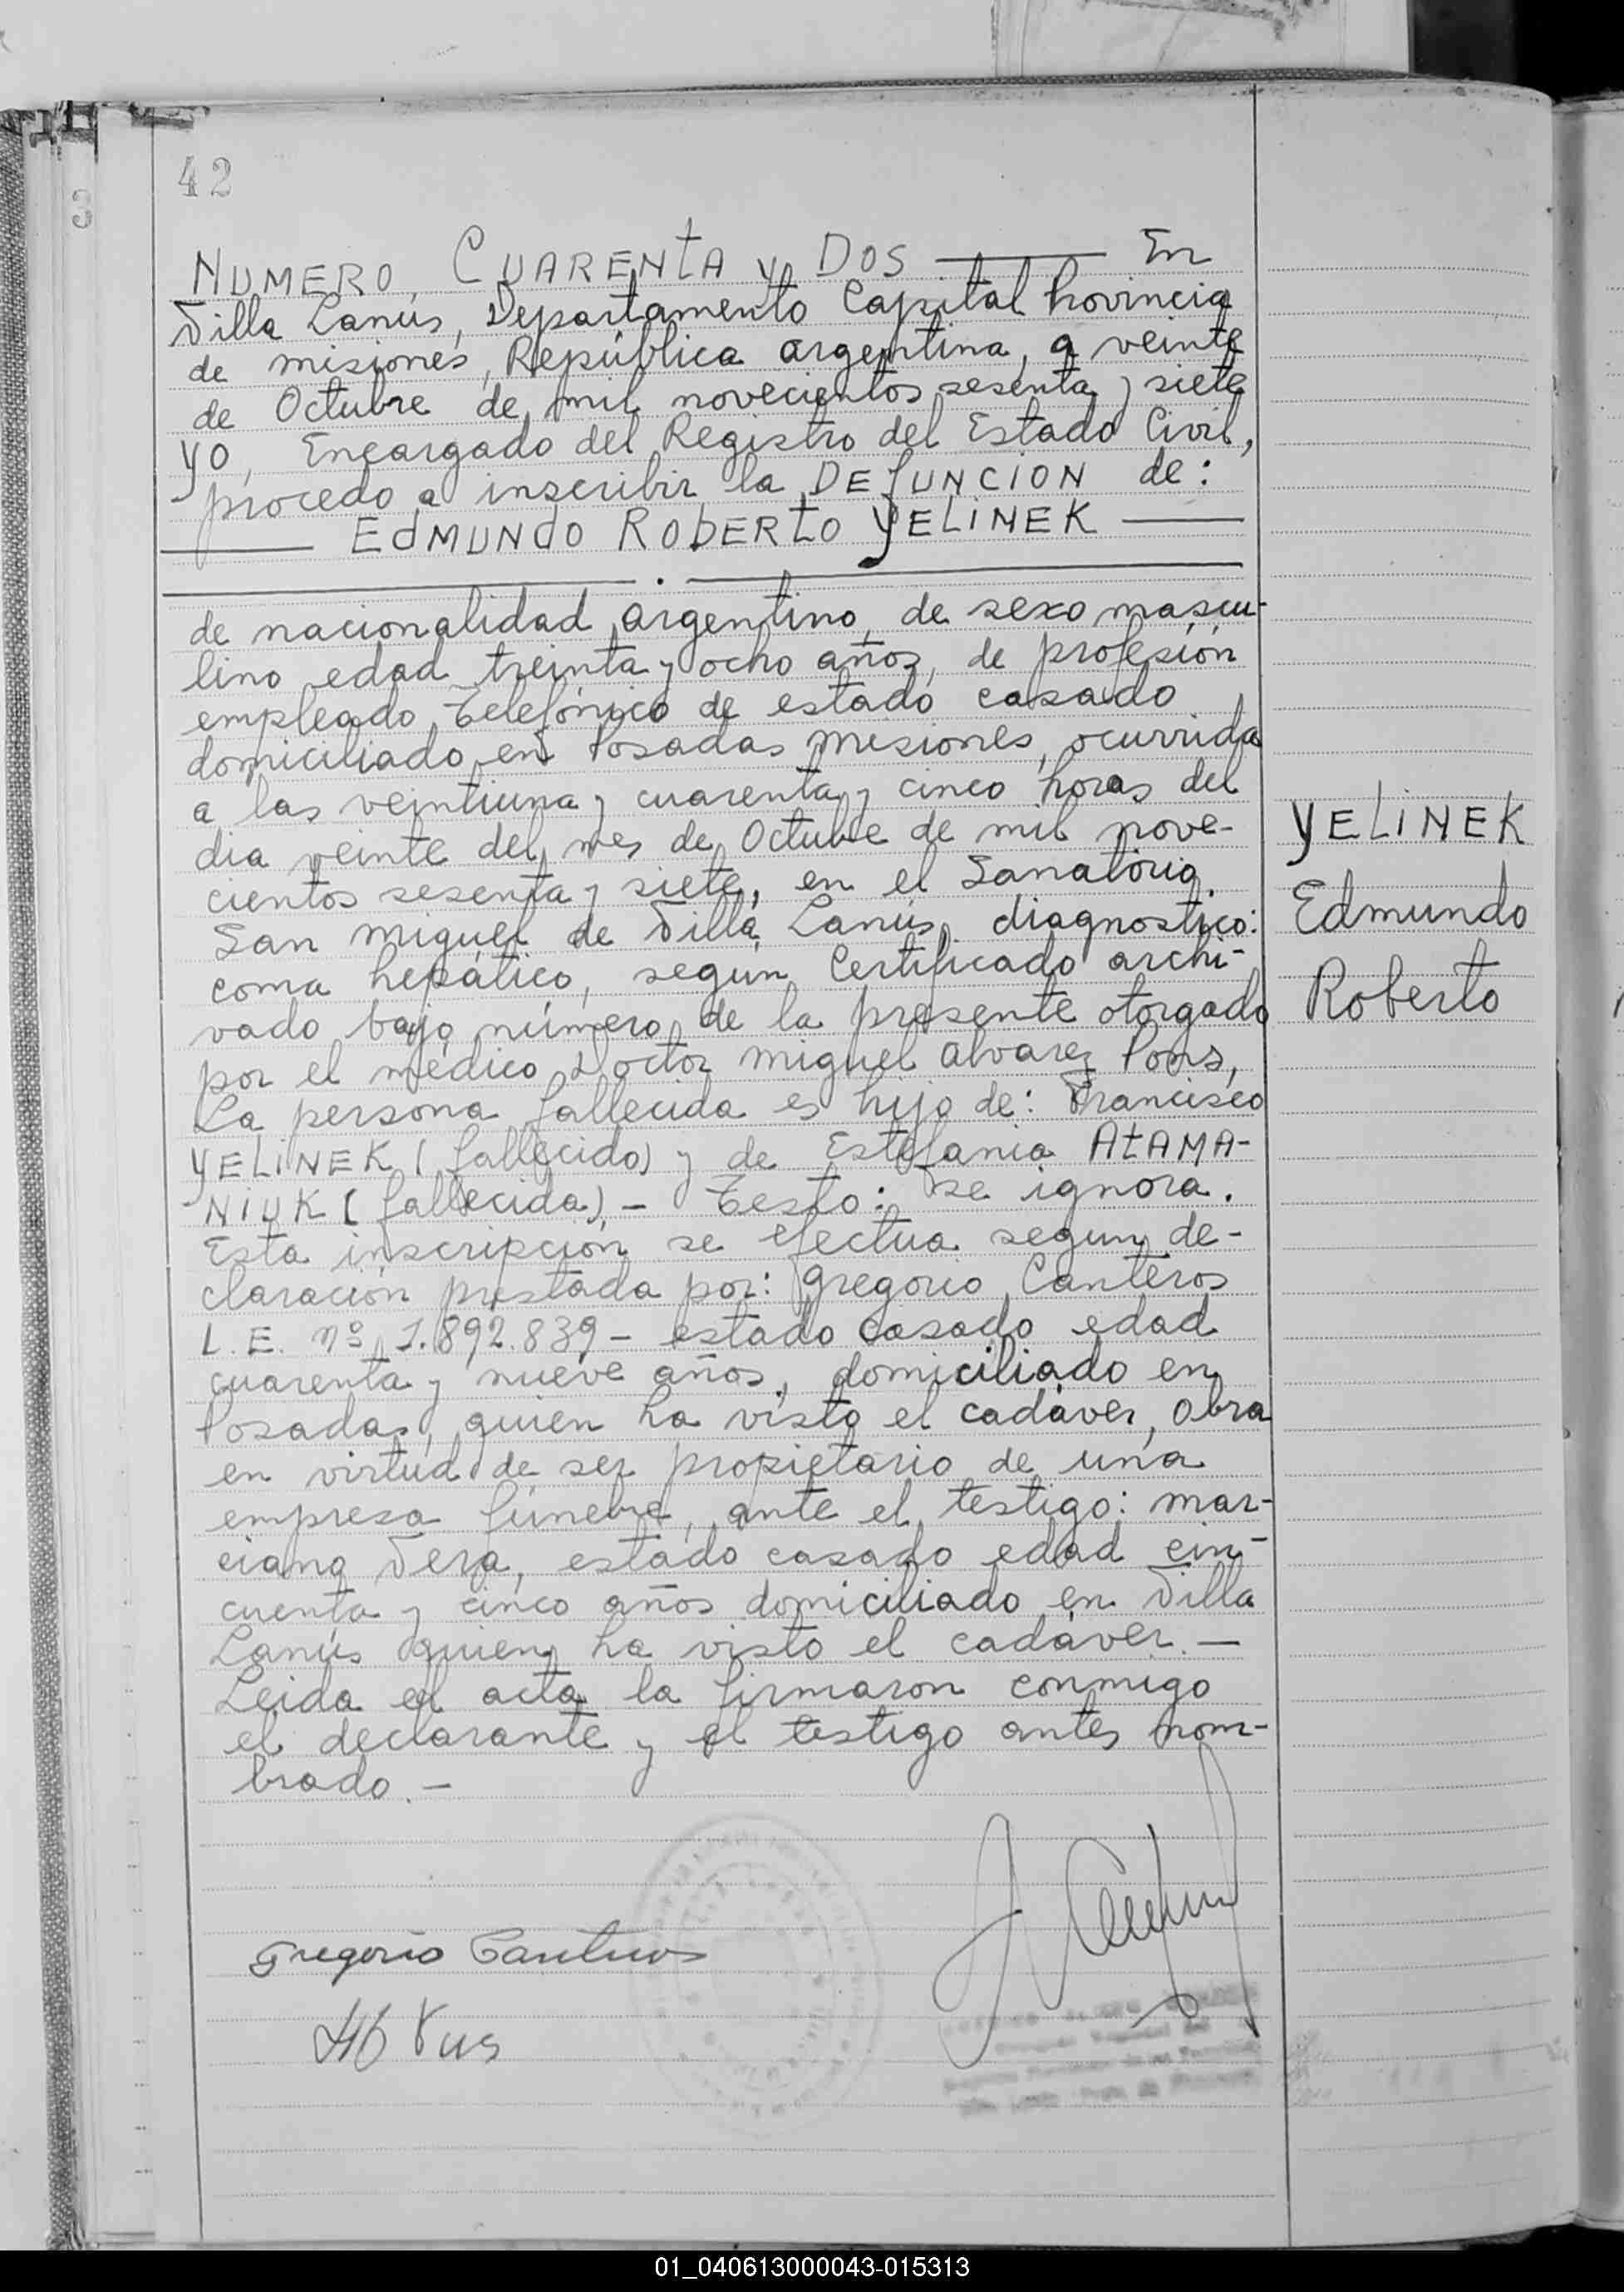 42
NUMERO, CUARENTA y DOS ——— En
Villa Lanús, Departamento Capital Provincia
de misiones, República argentina, a veinte
de Octubre de mil novecientos sesenta y siete
YO, Encargado del Registro del Estado Civil,
procedo a inscribir la DEFUNCION de:
——— EdMUNdO ROBERTO YELINEK ———
de nacionalidad argentino, de sexo mascu-
lino edad treinta y ocho años, de profesión
empleado Telefónico de estado casado
domiciliado en Posadas misiones, ocurrida
a las veintiuna y cuarenta y cinco horas del
dia veinte del mes de Octubre de mil nove-
cientos sesenta y siete, en el Sanatorio
San miguel de Villa Lanús, diagnostico:
coma hepático, según Certificado archi-
vado bajo número de la presente otorgado
por el médico Doctor miguel alvarez Pons,
La persona fallecida es hijo de: Francisco
YELINEK (fallecido) y de Estefania ATAMA-
NIUK (fallecida) - Testo: se ignora.
Esta inscripción se efectua segun de-
claración prestada por: gregorio Canteros
L.E. nº 1.892.839 - estado casado edad
cuarenta y nueve años, domiciliado en
Posadas, quien ha visto el cadáver, obra
en virtud de ser propietario de una
empresa fúnebre, ante el testigo: mar-
ciano Vera, estado casado edad cin-
cuenta y cinco años domiciliado en Villa
Lanús quien ha visto el cadáver. —
Leida el acta la firmaron conmigo
el declarante y el testigo antes nom-
brado. -
YELINEK
Edmundo
Roberto
Gregorio Canteros
01_040613000043-015313